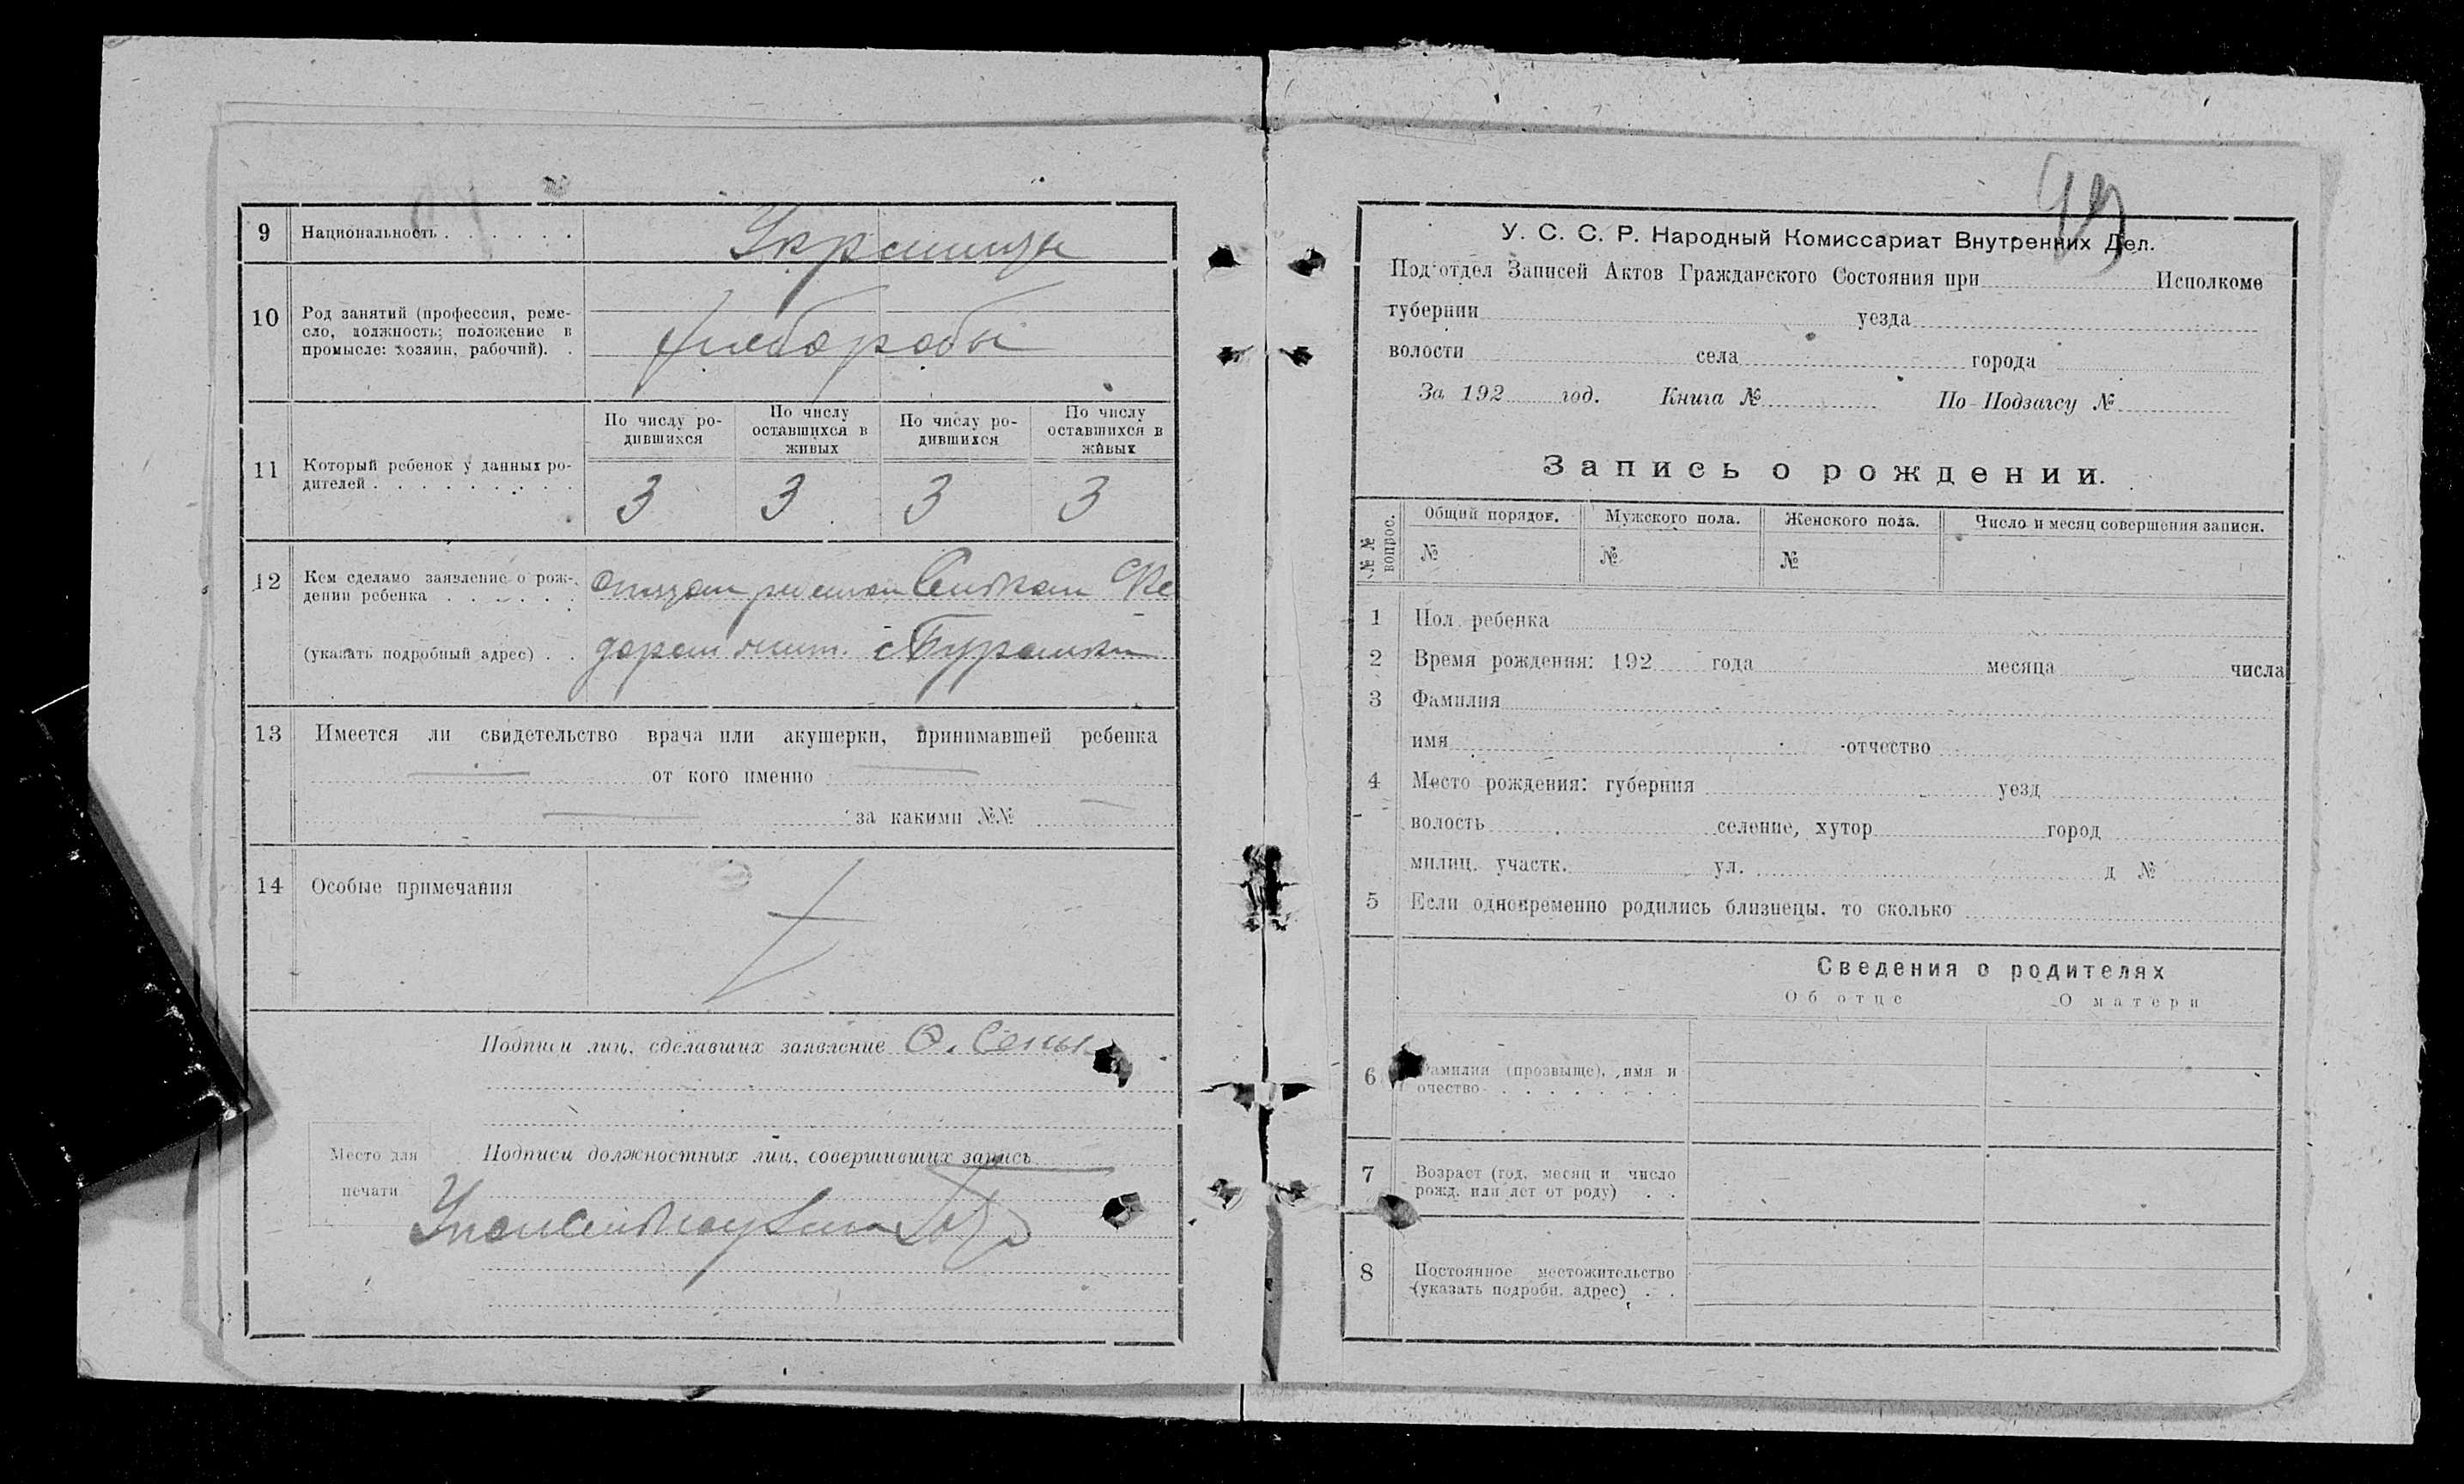 9 Национальность . . . . . . Украинцы
10 Род занятий (профессия, реме-
сло, должность; положение в
промысле: хозяин, рабочий). . хлеборобы
По числу ро-
дившихся
По числу
оставшихся в
живых
По числу ро-
дившихся
По числу
оставшихся в
живых
11 Который ребенок у данных ро-
дителей . . . . . . . . .
3 3 3 3
12 Кем сделано заявление о рож-
дении ребенка . . . . . . отцом
(указать подробный адрес) . . жит. с
13 Имеется ли свидетельство врача или акушерки, принимавшей ребенка
— от кого именно —
— за какими №№ —
14 Особые примечания
Подписи лиц, сделавших заявление О.
Подписи должностных лиц, совершивших запись
Место для
печати
У. С. С. Р. Народный Комиссариат Внутренних Дел.
Под'отдел Записей Актов Гражданского Состояния при Исполкоме
губернии уезда
волости села города
За 192 год. Книга № По Подзагсу №
Запись о рождении.
№ №
вопрос.
Общий порядок. Мужского пола. Женского пола. Число и месяц совершения записи.
№ № №
1 Пол ребенка
2 Время рождения: 192 года месяца числа
3 Фамилия
имя отчество
4 Место рождения: губерния уезд
волость селение, хутор город
милиц. участк. ул. д №
5 Если одновременно родились близнецы, то сколько
Сведения о родителях
Об отце О матери
6 Фамилия (прозвыще), имя и
очество . . . . . . . .
7 Возраст (год, месяц и число
рожд. или лет от роду) . .
8 Постоянное местожительство
(указать подробн. адрес) . .